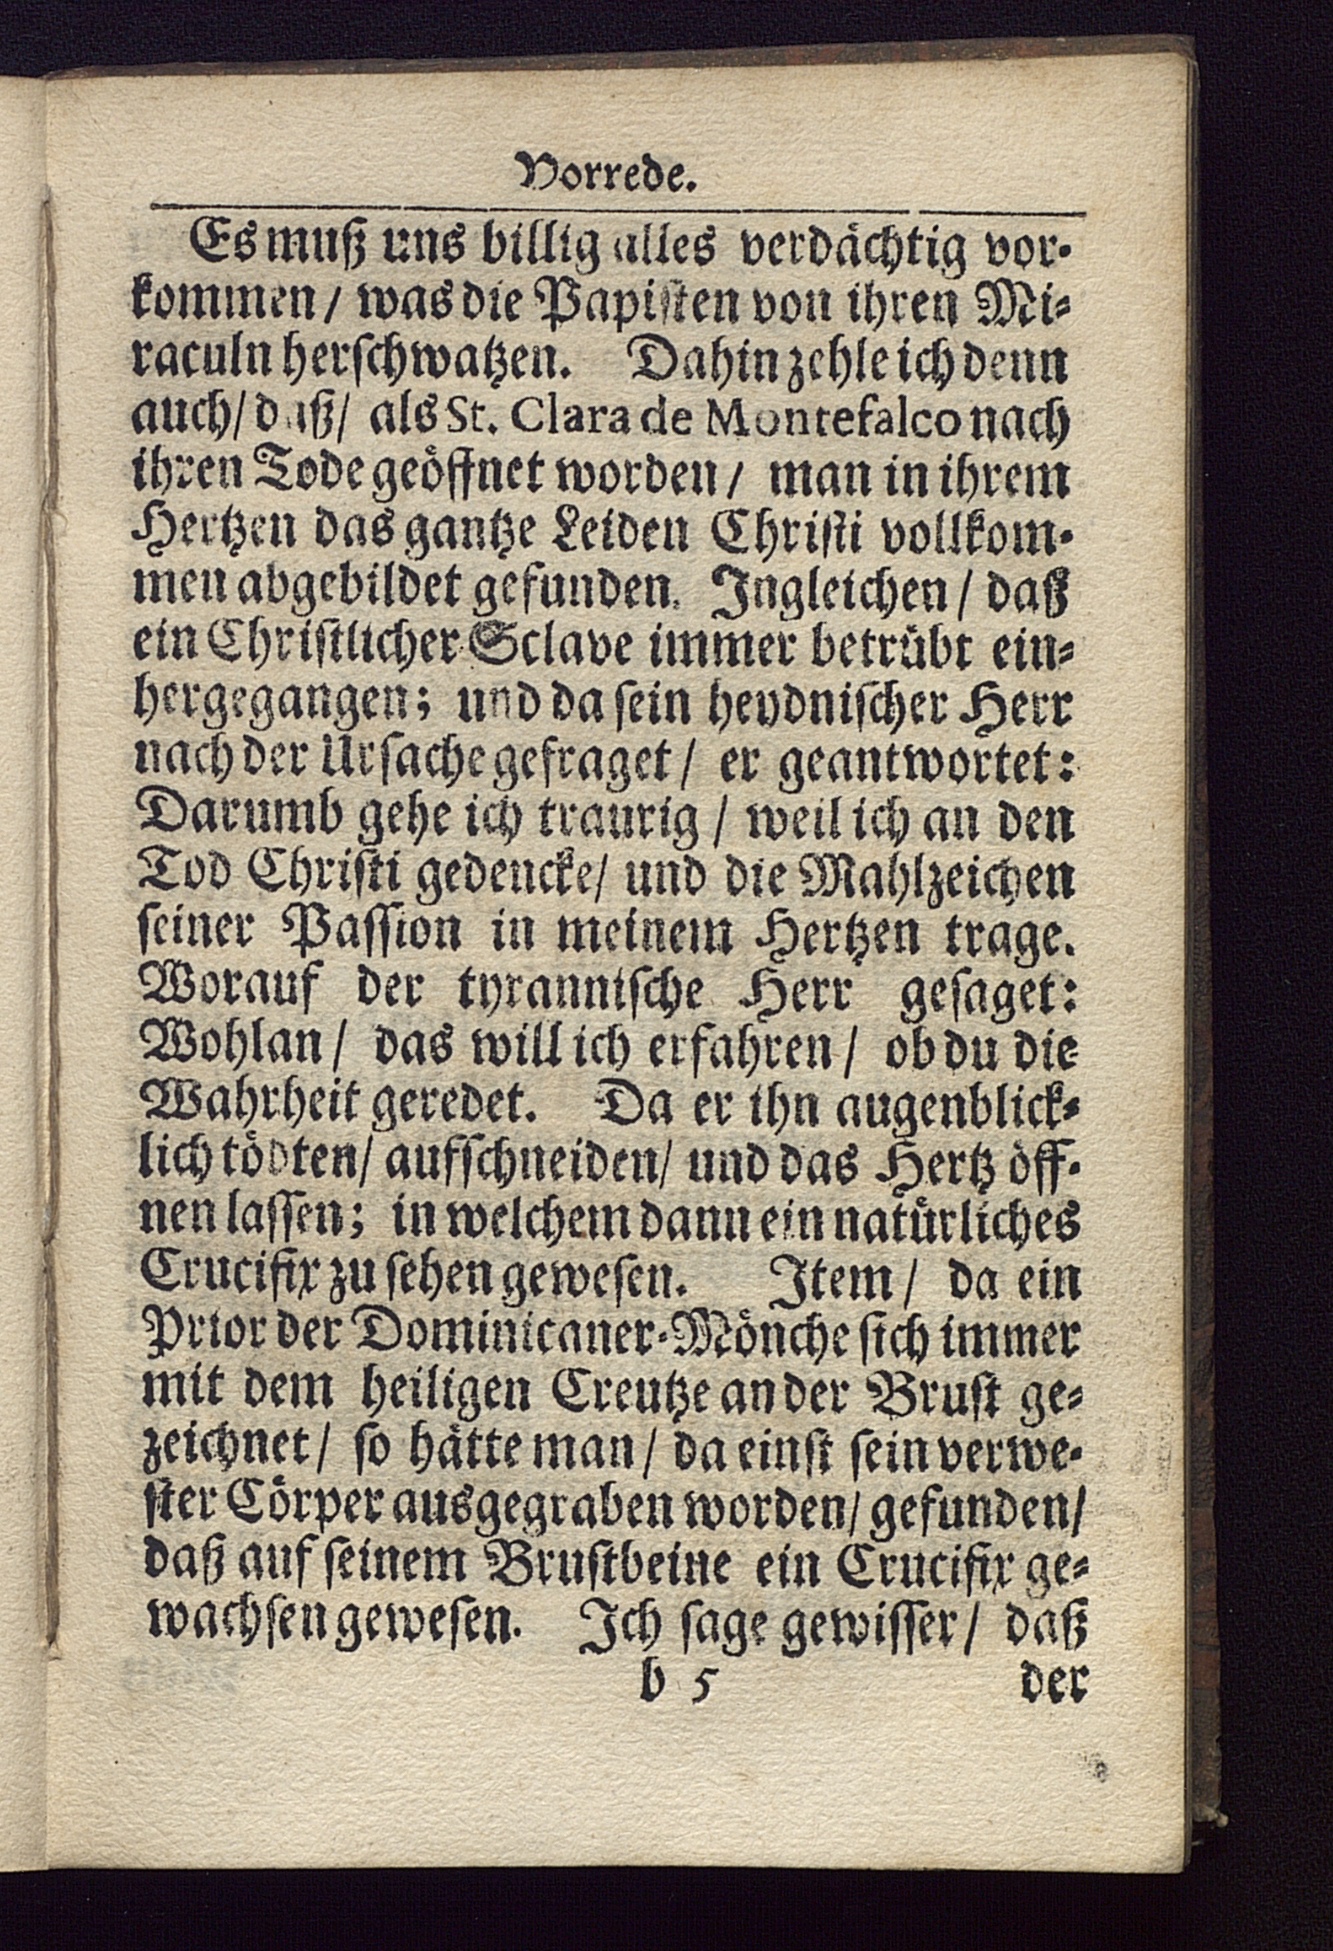 Vorrede.
Es muß uns billig alles verdächtig vor-
kommen / was die Papisten von ihren Mi-
raculn herschwatzen. Dahin zehle ich denn
auch / daß / als St. Clara de Montefalco nach
ihren Tode geöffnet worden / man in ihrem
Hertzen das gantze Leiden Christi vollkom-
men abgebildet gefunden. Ingleichen / daß
ein Christlicher Sclave immer betrübt ein-
hergegangen; und da sein heydnischer Herr
nach der Ursache gefraget / er geantwortet:
Darumb gehe ich traurig / weil ich an den
Tod Christi gedencke / und die Mahlzeichen
seiner Passion in meinem Hertzen trage.
Worauf der tyrannische Herr gesaget:
Wohlan / das will ich erfahren / ob du die
Wahrheit geredet. Da er ihn augenblick-
lich tödten / aufschneiden / und das Hertz öff-
nen lassen; in welchem dann ein natürliches
Crucifix zu sehen gewesen. Item / da ein
Prior der Dominicaner-Mönche sich immer
mit dem heiligen Creutze an der Brust ge-
zeichnet / so hätte man / da einst sein verwe-
ster Cörper ausgegraben worden / gefunden /
daß auf seinem Brustbeine ein Crucifix ge-
wachsen gewesen. Ich sage gewisser / daß
b 5 der